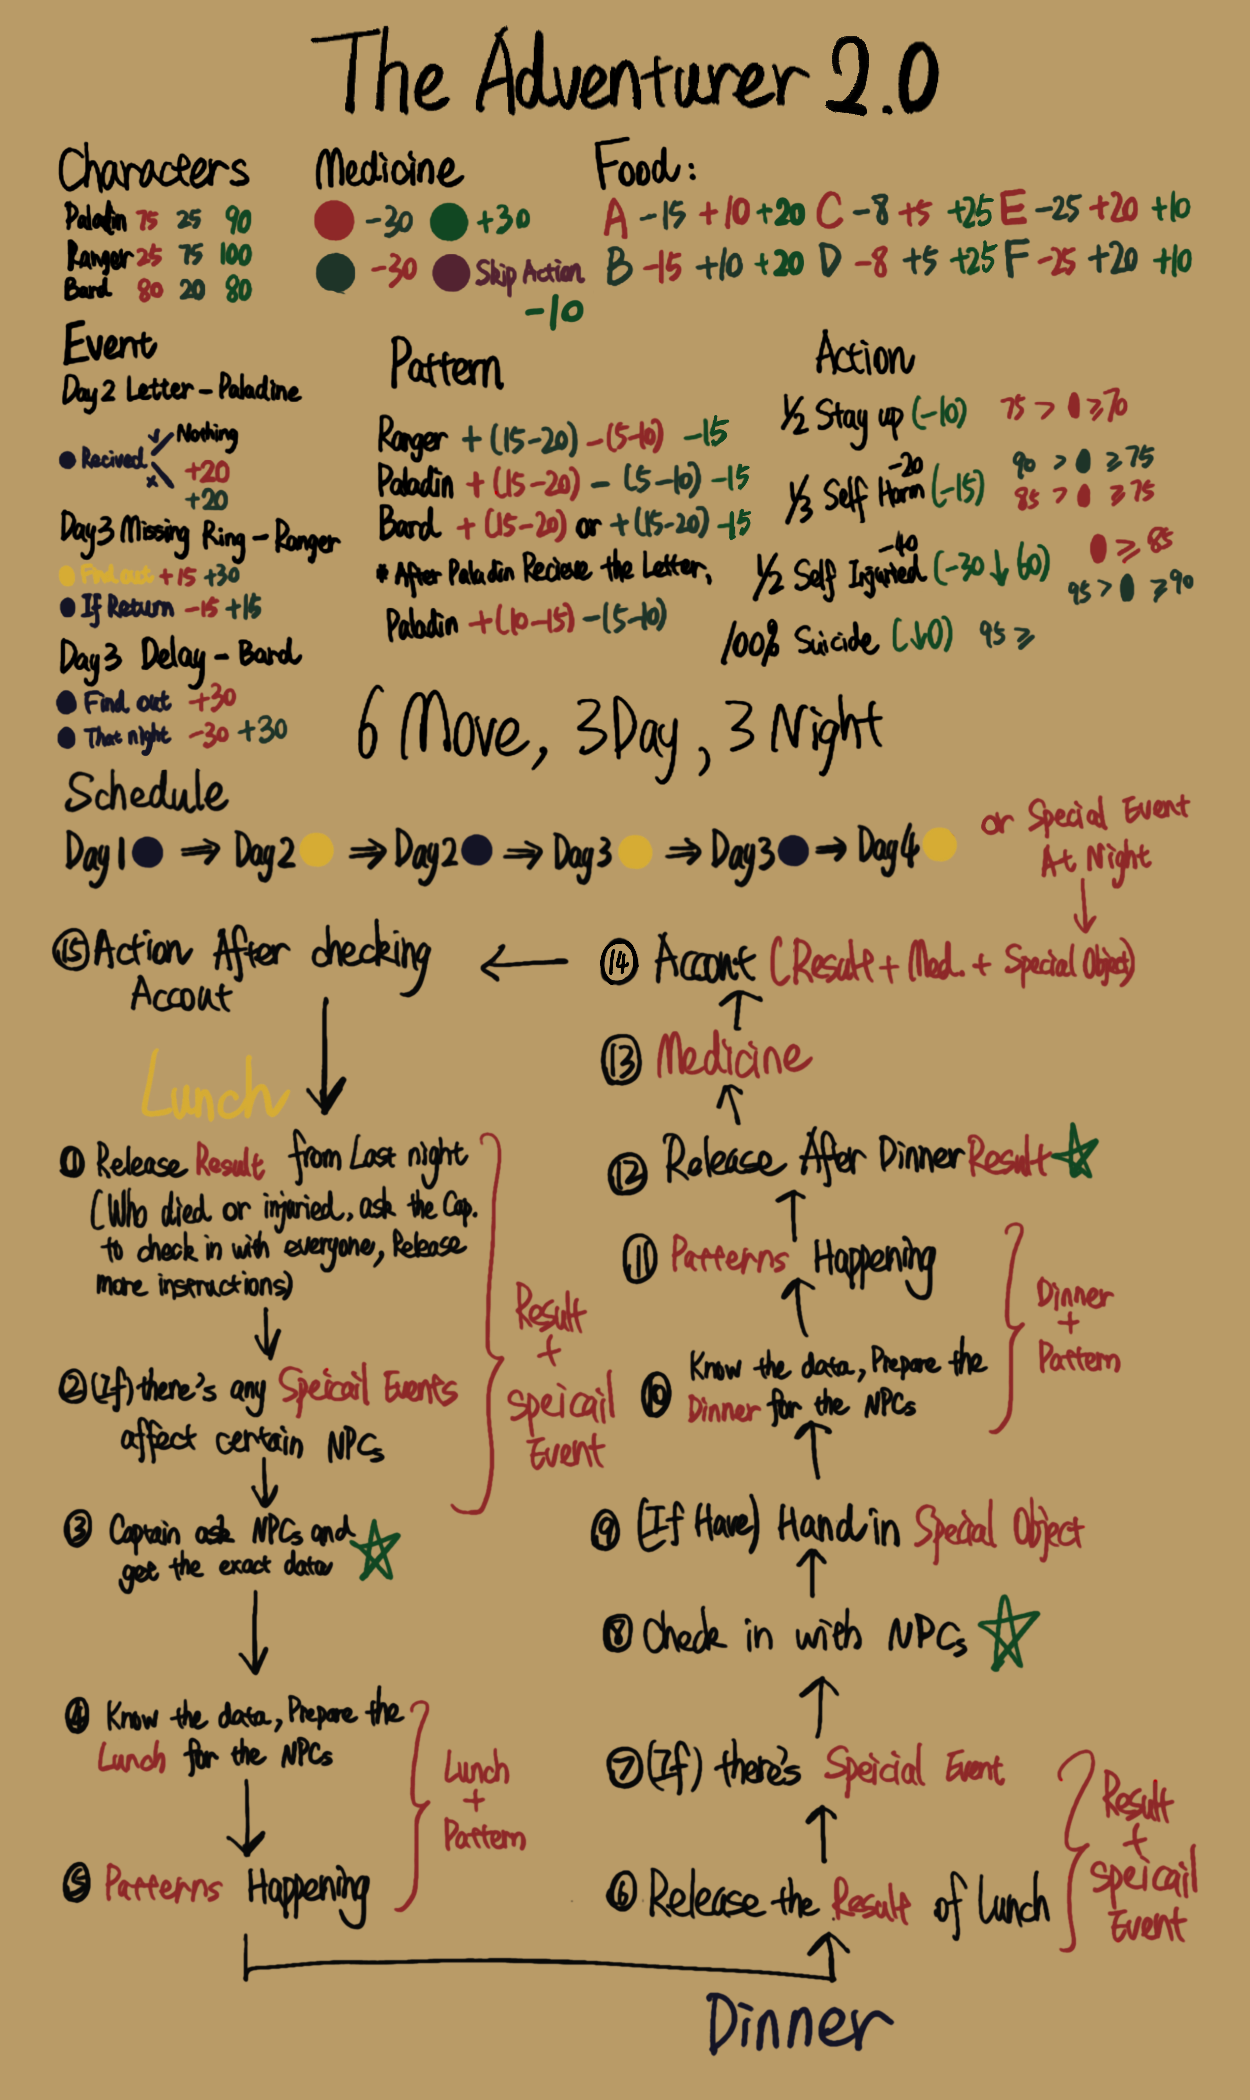 The Adventurer 2.0
Characters
Paladin 75 25 90
Ranger 25 75 100
Bard 80 20 80
Medicine
-30 +30
-30 Skip Action
-10
Food:
A -15 +10 +20 C -8 +5 +25 E -25 +20 +10
B -15 +10 +20 D -8 +5 +25 F -25 +20 +10
Event
Day 2 Letter - Paladine
Recived
v Nothing
x +20
+20
Day3 Missing Ring - Ranger
Find out +15 +30
If Return -15 +15
Day3 Delay - Bard
Find out +30
That night -30 +30
Pattern
Ranger +(15-20) -(5-10) -15
Paladin +(15-20) - (5-10) -15
Bard +(15-20) or +(15-20) -15
* After Paladin Recieve the Letter,
Paladin +(10-15) -(5-10)
Action
1/2 Stay up (-10) 75 > ≥70
-20
1/3 Self Harm (-15)
90 > ≥75
85 > ≥75
-40
1/2 Self Injuried (-30 ↓ 60)
≥85
95 > ≥90
100% Suicide (↓0) 95 ≥
6 Move, 3Day, 3 Night
Schedule
Day1 ⇒ Day2 ⇒ Day2 ⇒ Day3 ⇒ Day3 ⇒ Day4
or Special Event
At Night
⑮ Action After checking
Accout
⑭ Accont (Result + Med. + Special Object)
⑬ Medicine
⑫ Release After Dinner Result
⑪ Patterns Happening
⑩ Know the data, Prepare the
Dinner for the NPCs
Dinner
+
Pattern
⑨ (If Have) Hand in Special Object
⑧ Check in with NPCs
⑦ (If) there's Speicial Event
⑥ Release the Result of Lunch
Result
+
Speicail
Event
Lunch
① Release Result from Last night
(Who died or injuried, ask the Cap.
to check in with everyone, Release
more instructions)
② (If) there's any Speicail Events
affect certain NPCs
Result
+
Speicail
Event
③ Captain ask NPCs and
get the exact data
④ Know the data, Prepare the
Lunch for the NPCs
⑤ Patterns Happening
Lunch
+
Pattern
Dinner